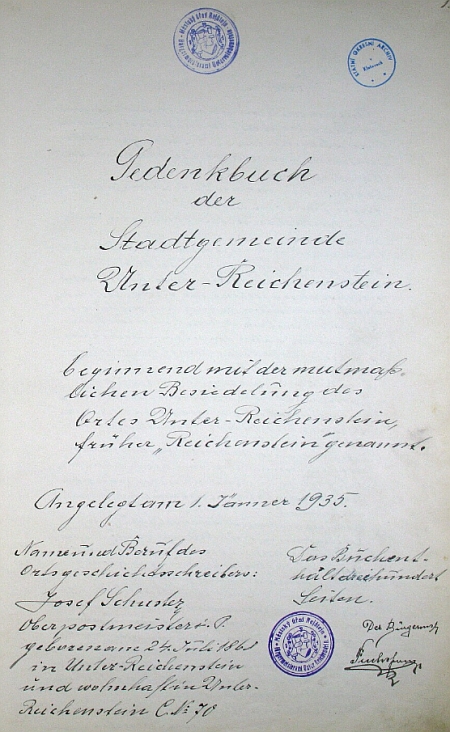 Gedenkbuch
der
Stadtgemeinde
Unter-Reichenstein.
beginnend mit der mutmaß-
lichen Besiedelung des
Ortes Unter-Reichenstein,
früher „Reichenstein" genannt.
Angelegt am 1. Jänner 1935.
Name und Beruf des
Ortsgeschichtsschreibers:
Josef Schuster
Oberpostmeister i. P.
geboren am 24. Juli 1861
in Unter-Reichenstein
und wohnhaft in Unter-
Reichenstein C. № 70
Das Buch ent-
hält dreihundert
Seiten.
Der Bürgermstr
STÁTNÍ OKRESNÍ ARCHIV
Klatovy